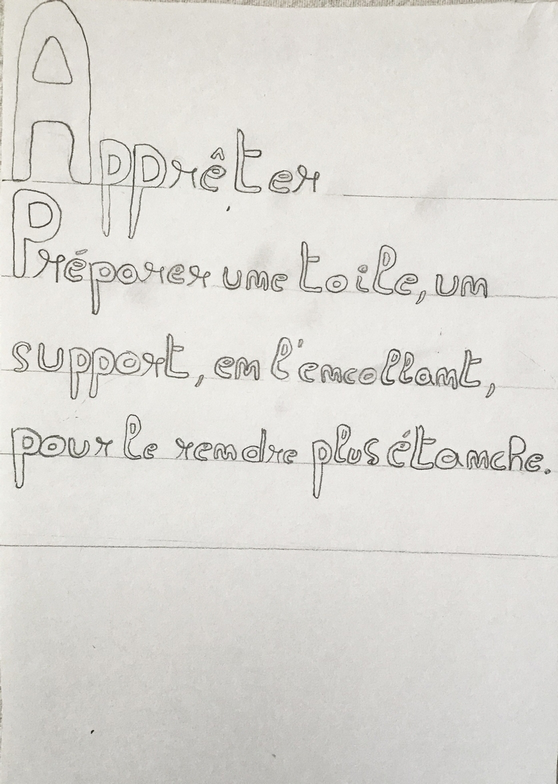 Apprêter
Préparer une toile, un
support, en l'encollant,
pour le rendre plus étanche.